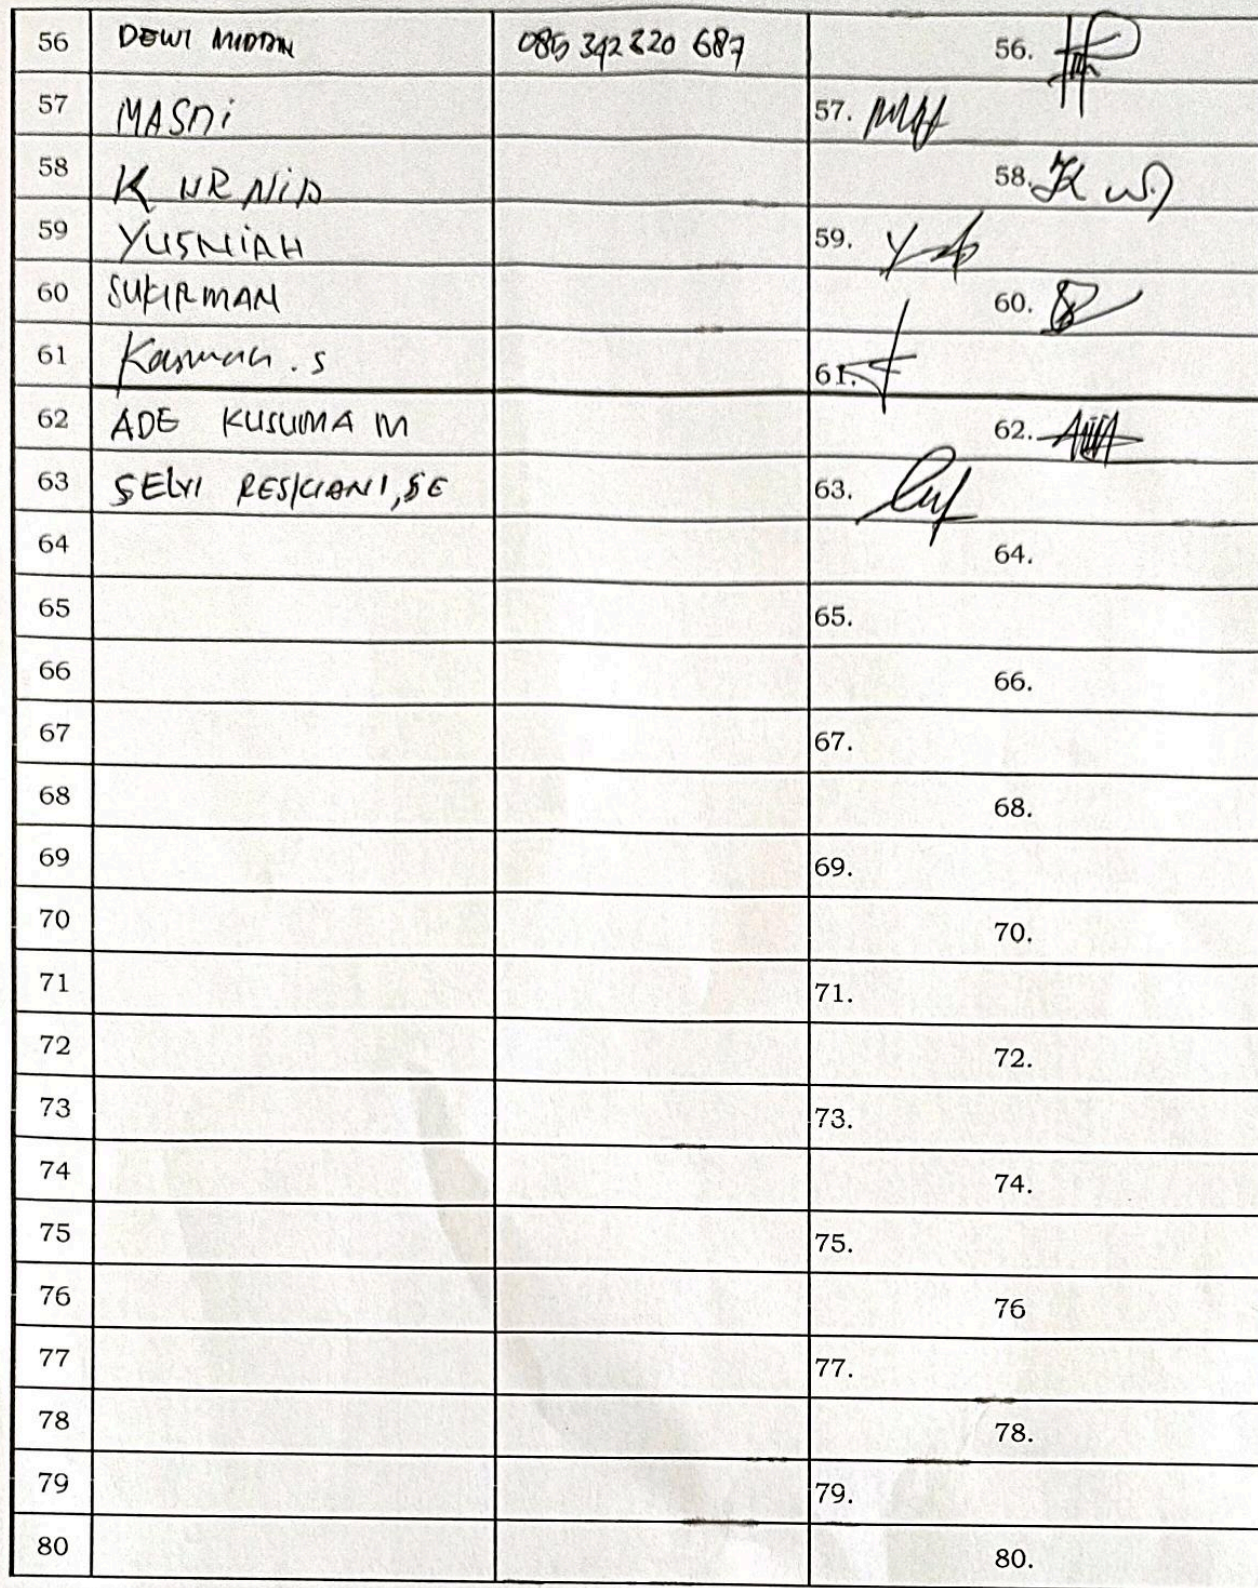 56 DEWI MIDDIN 085 342 820 687 56.
57 MASNi 57.
58 KURNiA 58.
59 YUSNIAH 59.
60 SUKIRMAN 60.
61 Kasman . S 61.
62 ADE KUSUMA M 62.
63 SELVI RESKIANI, SE 63.
64 64.
65 65.
66 66.
67 67.
68 68.
69 69.
70 70.
71 71.
72 72.
73 73.
74 74.
75 75.
76 76
77 77.
78 78.
79 79.
80 80.